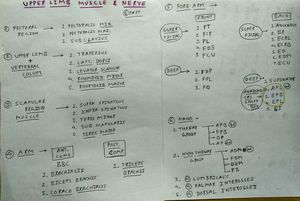 UPPER LIMB MUSCLE & NERVE
① PECTORAL REGION
1. PECTORALIS MAJ.
2. PECTORALIS MIN.
3. SUB CLAVIUS
② UPPER LIMB + VERTEBRAL COLUMN
1. TRAPEZIUS
2. LATI. DORSI
3. LEVATOR SCAPULI
4. RHOMBOID MINOR
5. RHOMBOID MAJOR
③ SCAPULAR REGION MUSCLE
1. SUPRA SPINATUS
2. INFRA SPINATUS
3. TERES MINOR
4. SUB SCAPULARIS
5. TERES MAJOR
④ ARM
ANT. COMP.
BBC
1. BRACHIALIS
2. BICEPS BRACHII
3. CORACO BRACHIALIS
POST. COMP.
1. TRICEPS BRACHII
⑤ FORE ARM
FRONT
BACK
SUPER FICIAL
1. PT
2. FCR
3. PL
4. FDS
5. FCU
SUPER FICIAL
1. ANCONEUS
2. BR
3. ECRL
4. ECRB
5. ED
6. EDM
7. ECU
DEEP
1. FDP
2. FPL
3. PQ
DEEP
1. SUPINATOR
2. APL
3. EPB
4. EPL
5. EI
⑥ HAND
1. THENAR GROUP
APB
FPB
OP
AP
2. HYPOTHENAR GROUP
ADM
FDM
ODM
PB
3. ④ LUMBRICALS
4. ④ PALMAR INTEROSSEI
5. ④ DORSAL INTEROSSEI